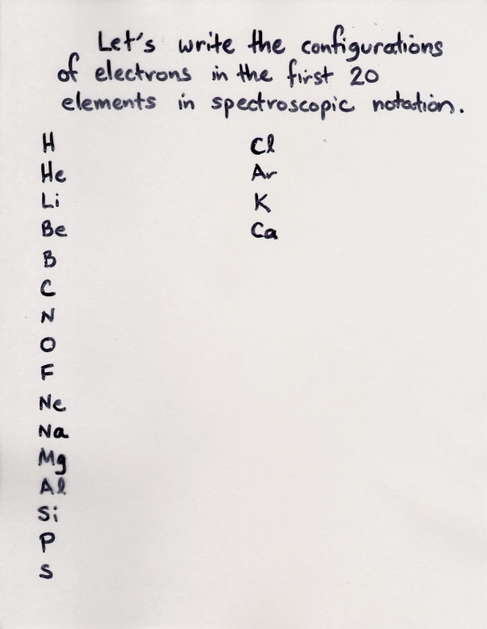 Let's write the configurations
of electrons in the first 20
elements in spectroscopic notation.
H
He
Li
Be
B
C
N
O
F
Ne
Na
Mg
Al
Si
P
S
Cl
Ar
K
Ca